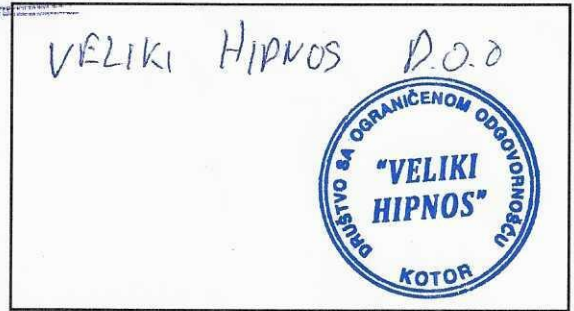 VELIKI HIPNOS D.O.O
DRUŠTVO SA OGRANIČENOM ODGOVORNOŠĆU
"VELIKI
HIPNOS"
KOTOR